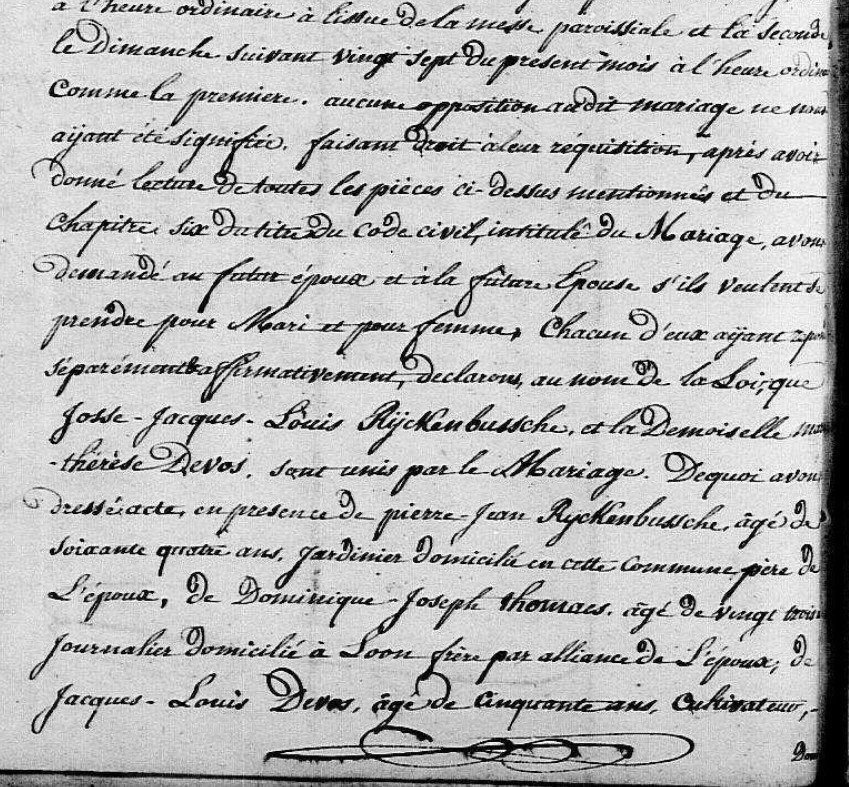 à l'heure ordinaire à l'issue de la messe paroissiale et la seconde
le Dimanche suivant vingt sept du present mois à l'heure ordin
Comme la premiere. aucune opposition audit mariage ne nous
aÿant été signifiée. faisant droit à leur réquisition, après avoir
donné lecture de toutes les pièces ci-dessus mentionnés et du
Chapitre six du titre du Code civil, intitulé du Mariage, avons
demandé au futur époux et à la future Epouse s'ils veulent se
prendre pour Mari et pour femme, Chacun d'eux aÿant repon
séparément & affirmativement, declarons, au nom de la Loi, que
Josse-Jacques-Louis Rÿckenbussche, et la Demoiselle
-thérèse Devos, sont unis par le Mariage. De quoi avons
dressé acte, en presence de pierre-Jean Rÿckenbussche, âgé de
soixante quatre ans, Jardinier domicilié en cette Commune père de
L'époux, de Dominique-Joseph thomaes, âgé de vingt trois
Journalier domicilié à Loon frère par alliance de L'époux, de
Jacques-Louis Devos, âgé de Cinquante ans, Cultivateur,-
Dom